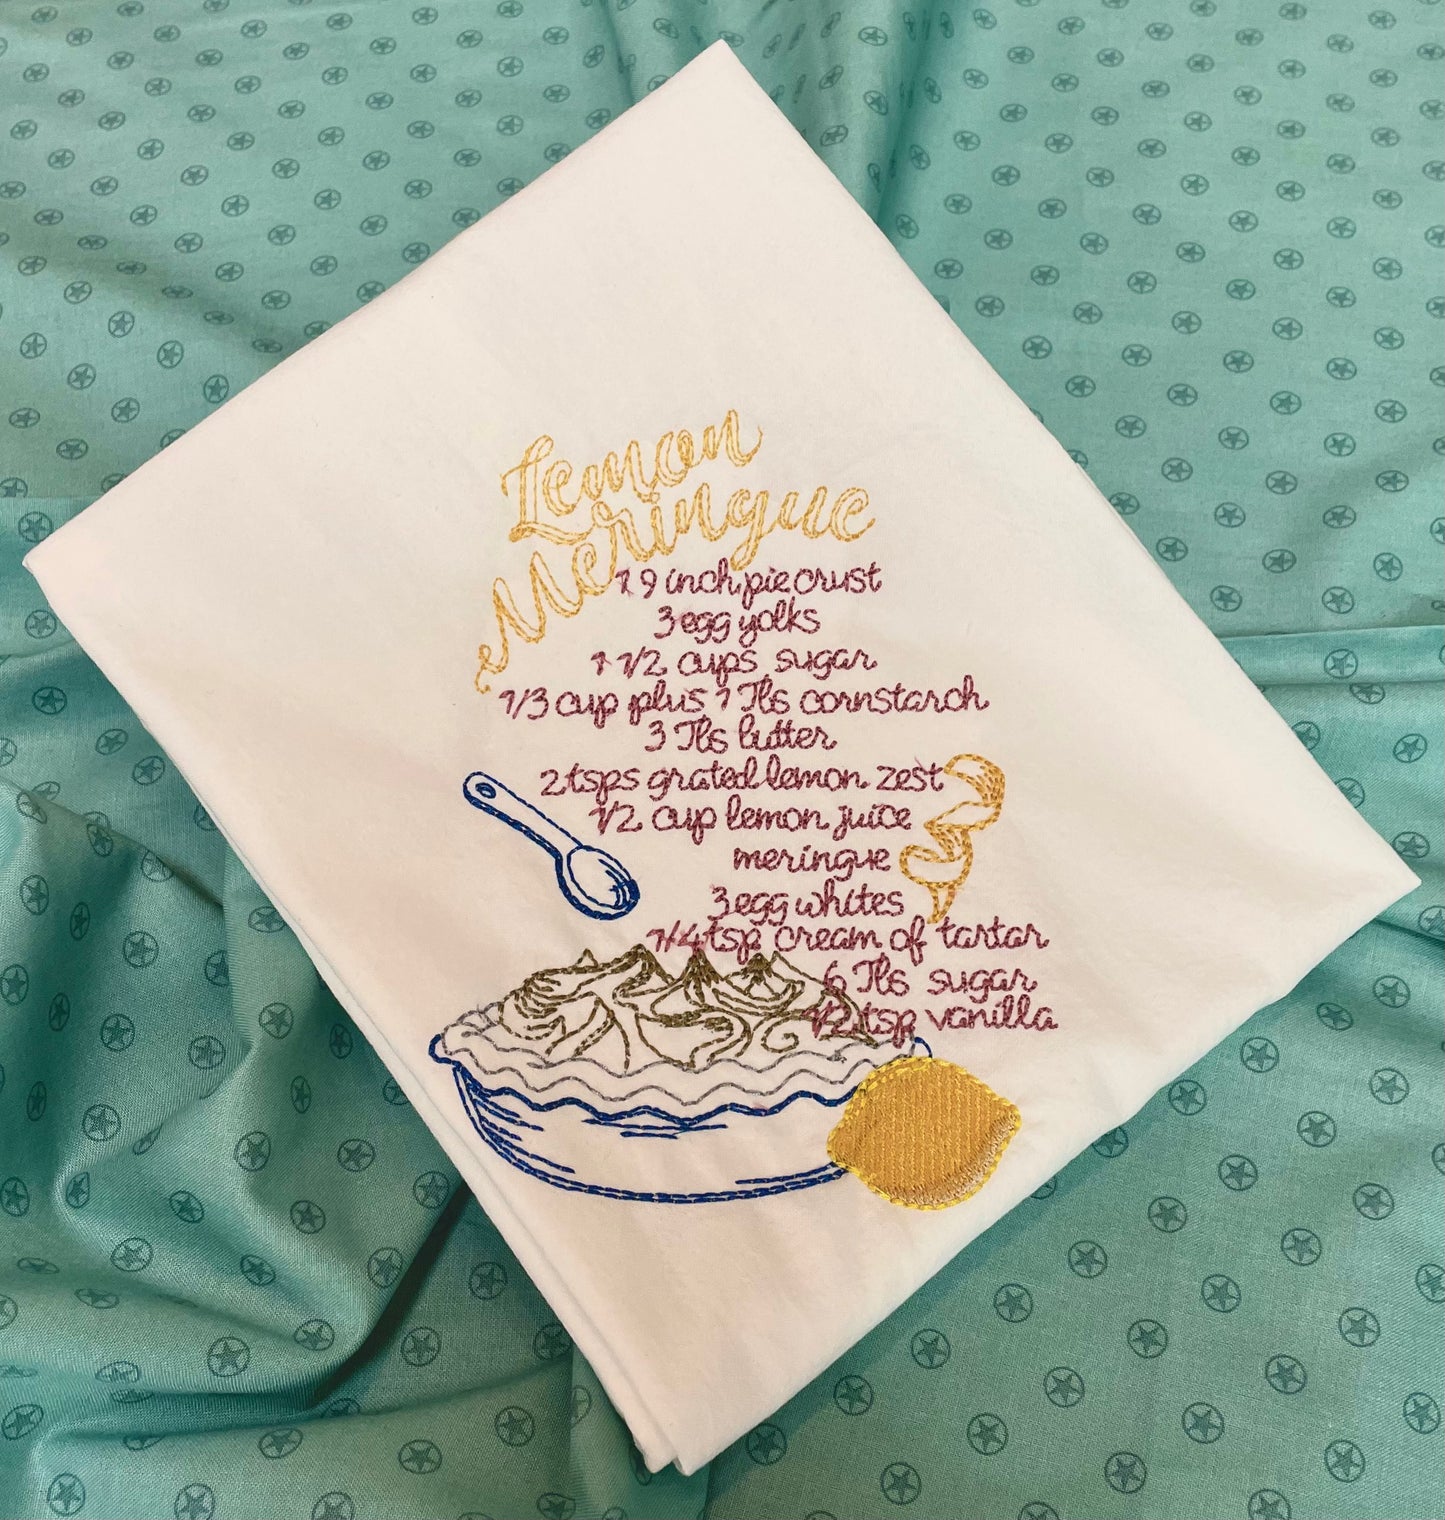 Lemon
Meringue
1 9 inch pie crust
3 egg yolks
1 1/2 cups sugar
1/3 cup plus 1 Tbs cornstarch
3 Tbs butter
2 tsps grated lemon zest
1/2 cup lemon juice
meringue
3 egg whites
1/4 tsp cream of tartar
6 Tbs sugar
1/2 tsp vanilla